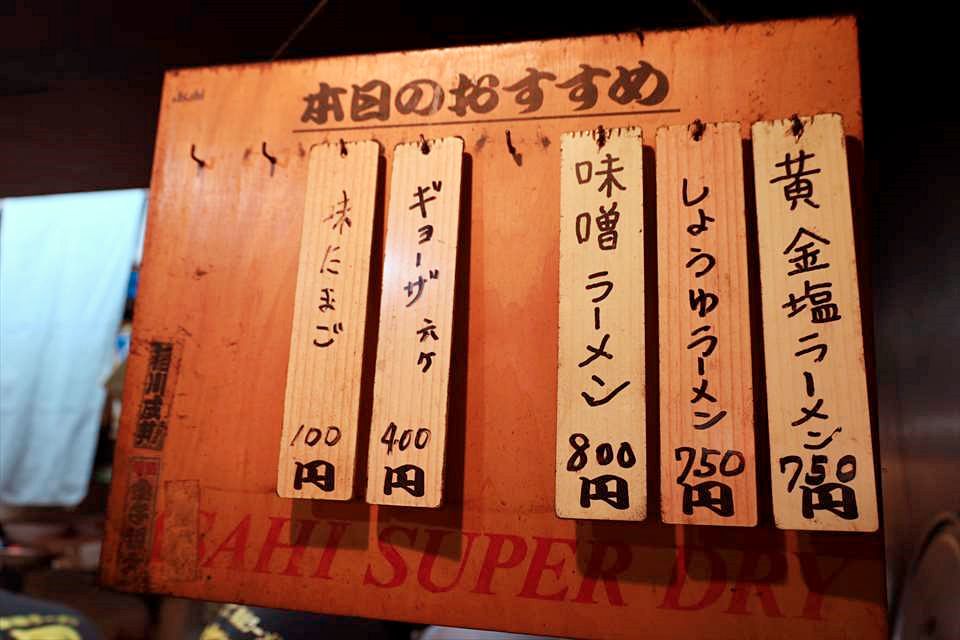 Asahi
本日のおすすめ
黄金塩ラーメン
750円
しょうゆラーメン
750円
味噌ラーメン
800円
ギョーザ 六ケ
400円
味たまご
100円
ASAHI SUPER DRY